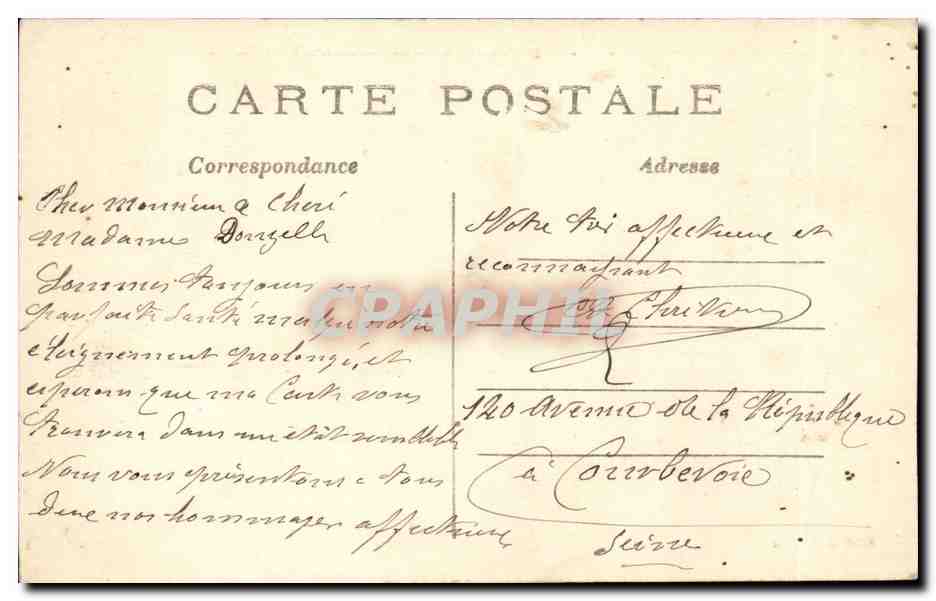 CARTE POSTALE
Correspondance
Cher Monsieur & Cheré
Madame Donzelle
Sommes toujours en
parfaite santé malgré notre
éloignement prolongé, et
espérons que ma Carte vous
trouvera dans un état semblable
Nous vous présentons a tous
deux nos hommages affectueux
Adresse
Votre très affectueux et
reconnaissant
120 Avenue de la République
à Courbevoie
Seine
CPAPHIL